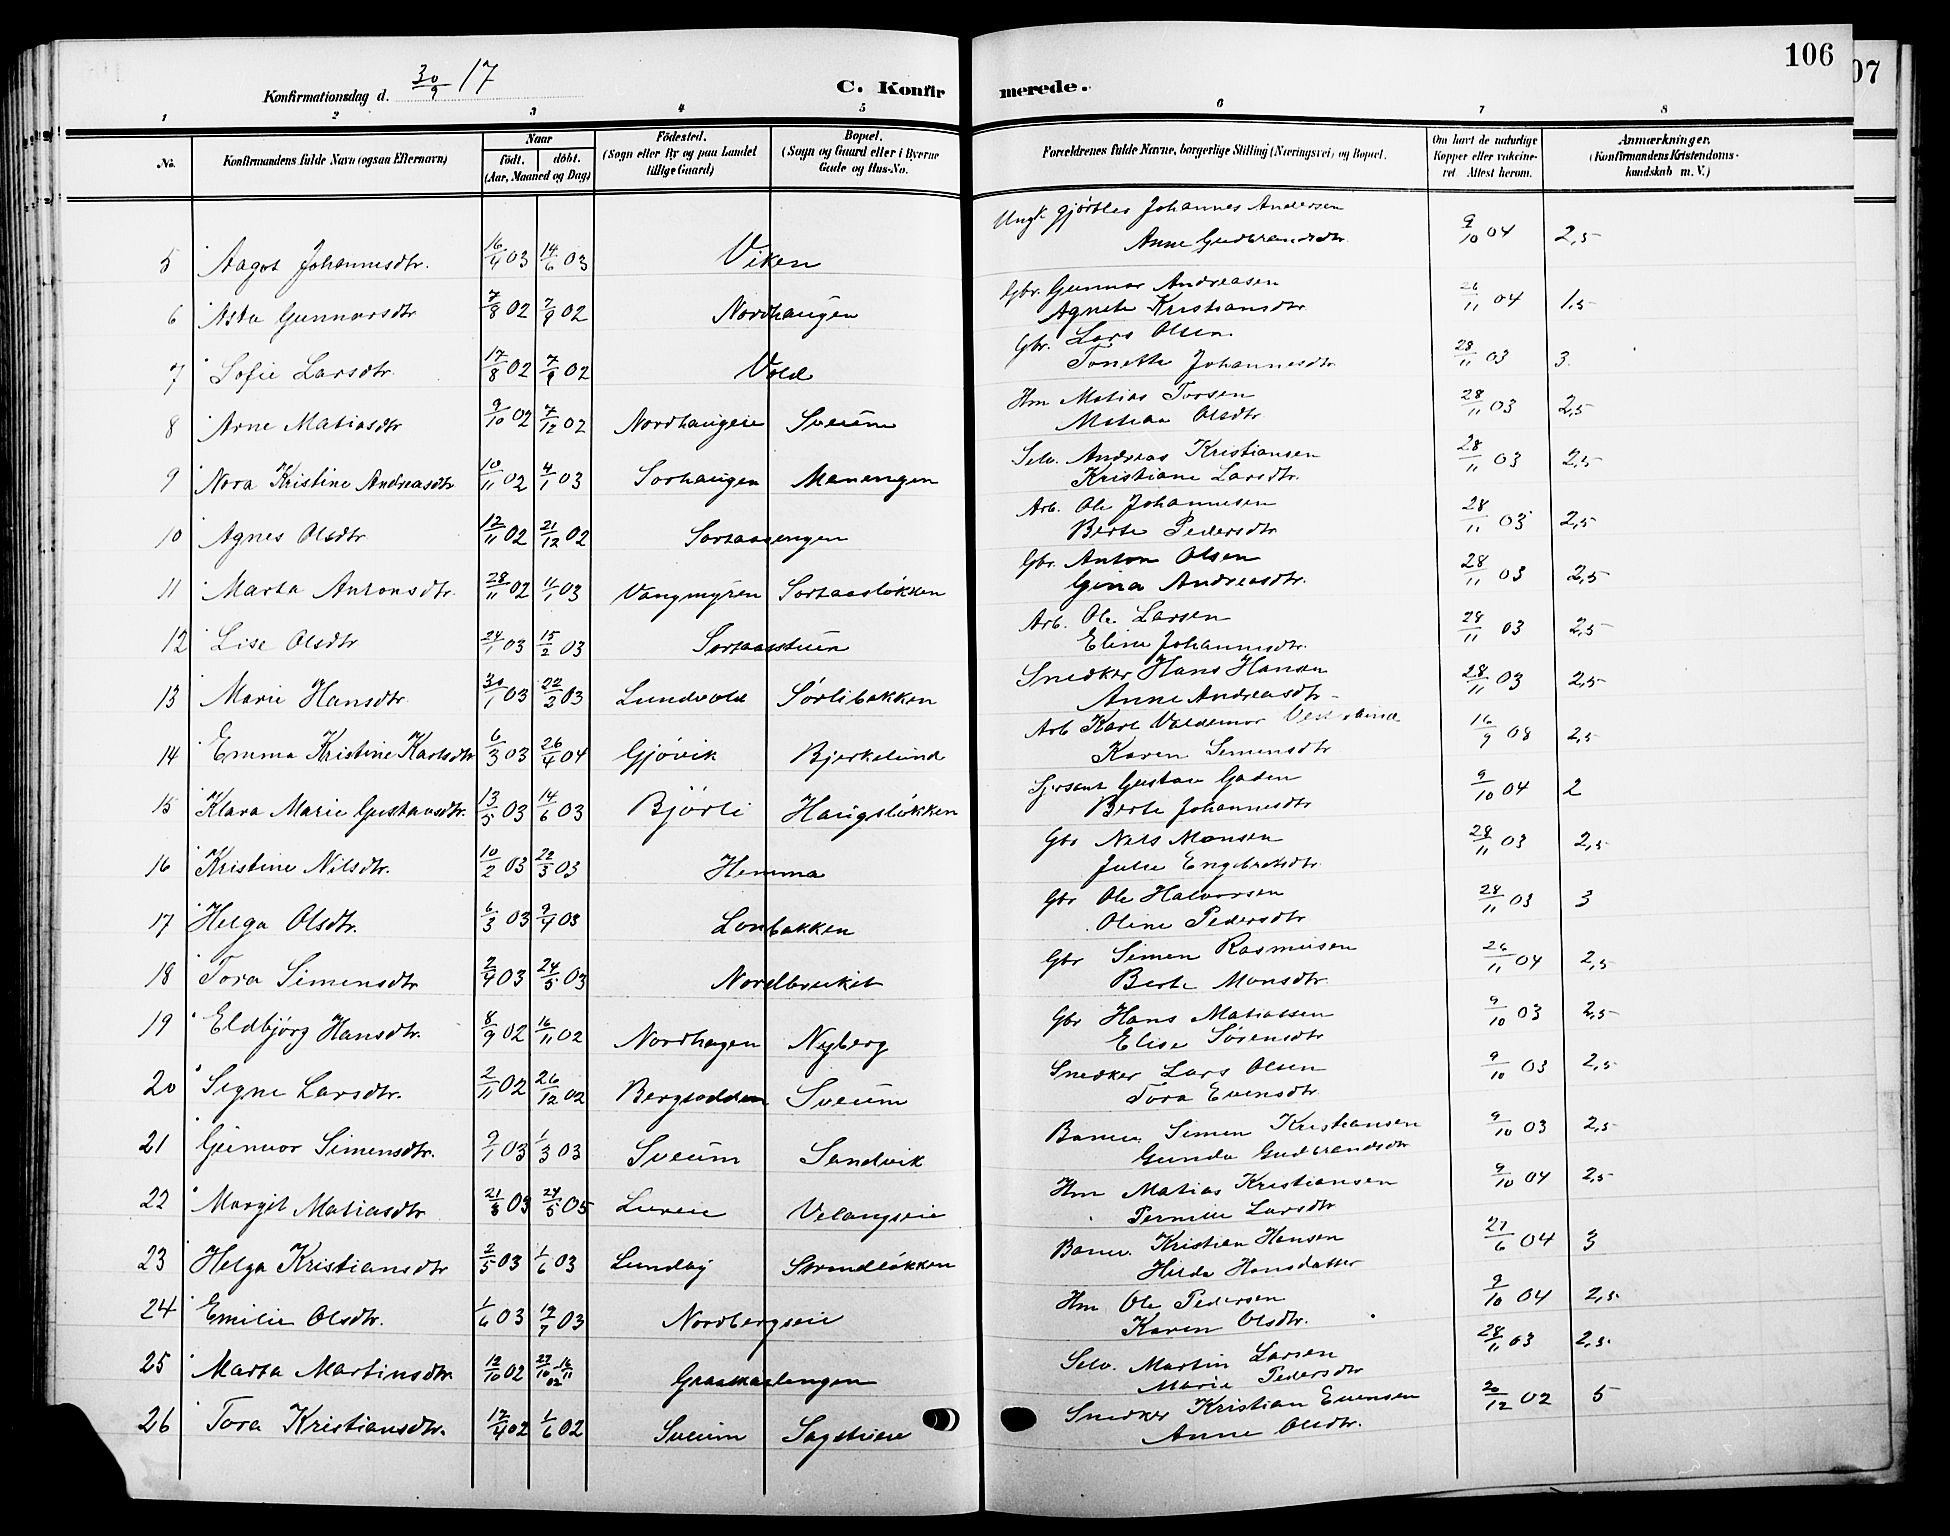 106
07
Konfirmationsdag d. 30/9 17
C. Konfirmerede.
1 2 3 4 5 6 7 8
No. Konfirmandens fulde Navn (ogsaa Efternavn) Naar født. døbt. (Aar, Maaned og Dag) Födested. (Sogn eller By og paa Landet tillige Gaard) Bopæl. (Sogn og Gaard eller i Byerne Gade og Hus-No. Forældrenes fulde Navne, borgerlige Stilling (Næringsvei) og Bopæl. Om havt de naturlige Kopper eller vaccineret. Attest herom. Anmærkninger. (Konfirmandens Kristendomskundskab m. V.)
5 Aagot Johannesdtr. 16/4 03 14/6 03 Viken Ungk. Johannes Andersen 9/10 04 2,5
Anne Gudbrandsdtr.
6 Asta Gunnarsdtr 7/8 02 7/9 02 Nordhaugen Gbr. Gunnar Andreasen 26/11 04 1,5
Agnete Kristiansdtr
7 Sofie Larsdtr. 17/8 02 7/9 02 Vold Gbr. Lars Olsen 28/11 03 3.
Tonette Johannesdtr
8 Arne Matiasdtr 9/10 02 7/12 02 Nordhaugeie Sveum Hm Matias Torsen 28/11 03 2,5
Olsdtr
9 Nora Kristine Andreasdtr 10/11 02 4/1 03 Sorhaugen Manengen Selv. Andreas Kristiansen 28/11 03 2,5
Kristiane Larsdtr.
10 Agnes Olsdtr 12/11 02 21/12 02 Sortaasengen Arb. Ole Johannesen 28/11 03 2,5
Berte Pedersdtr
11 Marta Antonsdtr. 28/11 02 11/1 03 Vangmyren Sortaasløkken Gbr. Anton Olsen 28/11 03 2,5
Gina Andreasdtr.
12 Lise Olsdtr 24/1 03 15/2 03 Sortaasstuen Arb. Ole Larsen 28/11 03 2,5
Eline Johannesdtr.
13 Marie Hansdtr. 30/1 03 22/2 03 Lundvold Sørlibakken Snedker Hans Hansen 28/11 03 2,5
Anne Andreasdtr
14 Emma Kristine Karlsdtr 6/3 03 26/4 04 Gjøvik Bjerkelund Arb Karl Valdemar 16/9 08 2,5
Karen Simensdtr
15 Klara Marie Gustavsdtr. 13/5 03 14/6 03 Bjørli Haugsløkken Sjersant Gustav Gaden 9/10 04 2
Berte Johannesdtr
16 Kristine Nilsdtr. 10/2 03 22/3 03 Hemma Gbr Nils Monsen 28/11 03 2,5
Julie Engebretsdtr.
17 Helga Olsdtr. 6/3 03 9/4 03 Lonbakken Gbr Ole Halvorsen 28/11 03 3
Oline Pedersdtr
18 Tora Simensdtr 2/4 03 24/5 03 Nordbruket Gbr Simen Rasmusen 26/11 04 2,5
Berte Monsdtr.
19 Eldbjørg Hansdtr. 8/9 02 16/11 02 Nordhagen Nyberg Gbr Hans Matiassen 9/10 03 2,5
Elise Sørensdtr
20 Signe Larsdtr. 2/11 02 26/12 02 Bergsodden Sveum Snedker Lars Olsen 9/10 03 2,5
Tora Evensdtr.
21 Gunvor Simensdtr. 9/1 03 1/3 03 Sveum Sandvik Banev. Simen Kristiansen 9/10 03 2,5
Gunda Gudbrandsdtr
22 Margit Matiasdtr 21/3 03 24/5 05 Lureie Velangseie Hm Matias Kristiansen 9/10 04 2,5
Pernille Larsdtr
23 Helga Kristiansdtr 2/5 03 1/6 03 Lundby Strandløkken Banev. Kristian Hansen 27/6 04 3
Hilda Hansdatter
24 Emilie Olsdtr. 1/6 03 19/7 03 Nordbergseie Hm Ole Pedersen 9/10 04 2,5
Karen Olsdtr.
25 Marta Martinsdtr 12/10 02 27/10 - 16/11 02 Selv. Martin Larsen 28/11 03 2,5
Marie Pedersdtr
26 Tora Kristiansdtr. 12/4 02 1/6 02 Sveum Sagstuen Snedker Kristian Evensen 20/12 02 5
Anne Olsdtr.